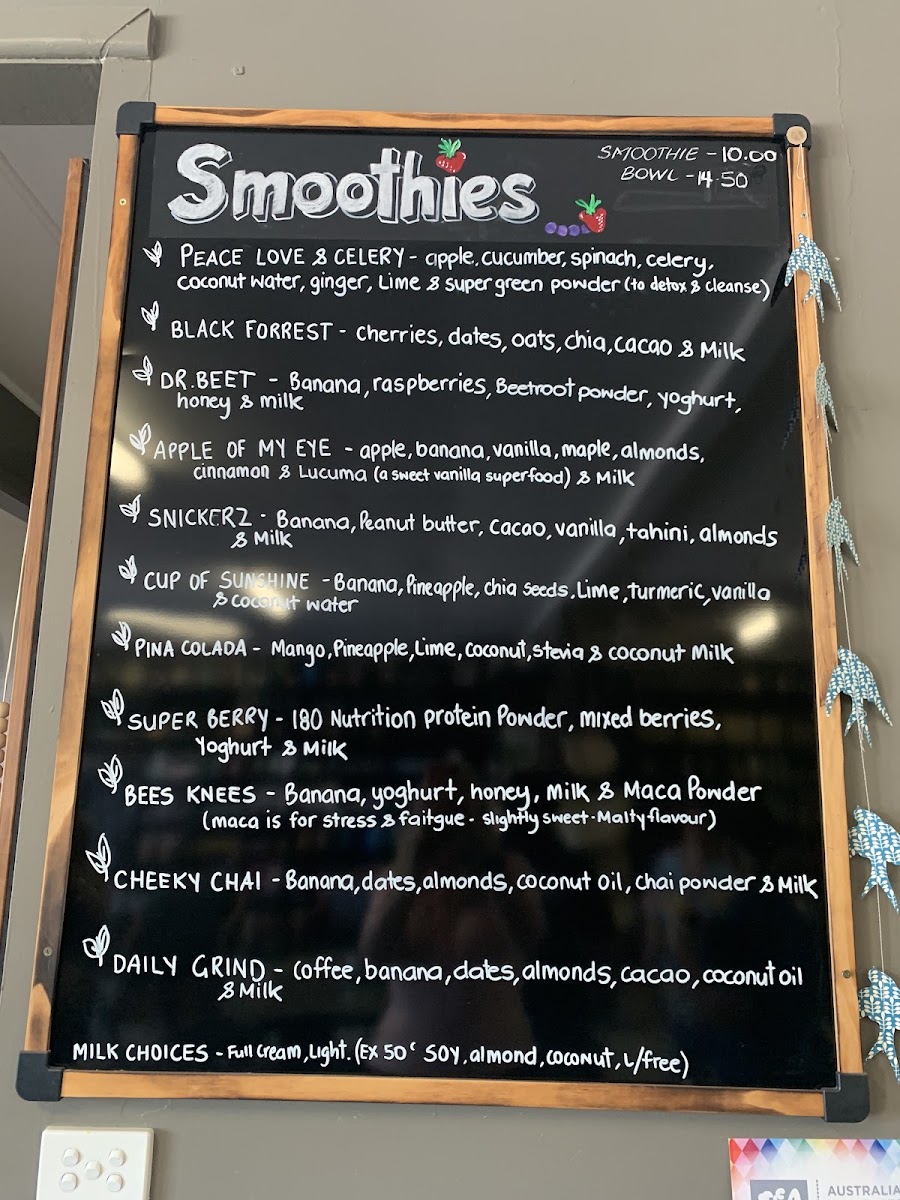 Smoothies
SMOOTHIE - 10.00
BOWL - 14.50
PEACE LOVE & CELERY - apple, cucumber, spinach, celery,
coconut water, ginger, Lime & super green powder (to detox & cleanse)
BLACK FORREST - cherries, dates, oats, chia, cacao & Milk
DR. BEET - Banana, raspberries, Beetroot powder, yoghurt,
honey & milk
APPLE OF MY EYE - apple, banana, vanilla, maple, almonds,
cinnamon & Lucuma (a sweet vanilla superfood) & Milk
SNICKERZ - Banana, Peanut butter, cacao, vanilla, tahini, almonds
& Milk
CUP OF SUNSHINE - Banana, Pineapple, chia seeds, Lime, turmeric, vanilla
& coconut water
PINA COLADA - Mango, Pineapple, Lime, coconut, stevia & coconut Milk
SUPER BERRY - 180 Nutrition protein Powder, mixed berries,
Yoghurt & Milk
BEES KNEES - Banana, yoghurt, honey, milk & Maca Powder
(maca is for stress & faitgue - slightly sweet - Malty flavour)
CHEEKY CHAI - Banana, dates, almonds, coconut oil, chai powder & Milk
DAILY GRIND - coffee, banana, dates, almonds, cacao, coconut oil
& Milk
MILK CHOICES - Full cream, Light. (EX 50c SOY, almond, coconut, L/free)
AUSTRALIA